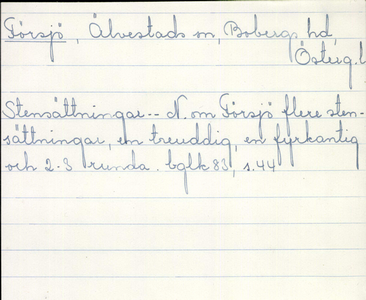 Försjö, Älvestads sn, Bobergs hd,
Österg.l
Stensättningar -- N. om Försjö flere sten-
sättningar, en treuddig, en fyrkantig
och 2-3 runda. bglk 83, s. 44